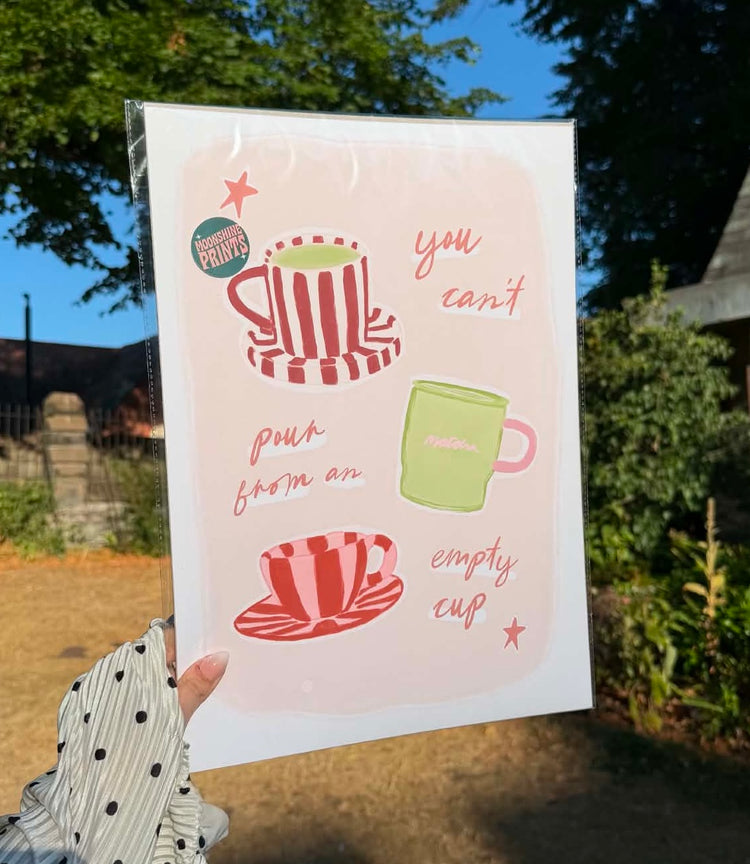 MOONSHINE
PRINTS
you
can't
matcha
pour
from an
empty
cup